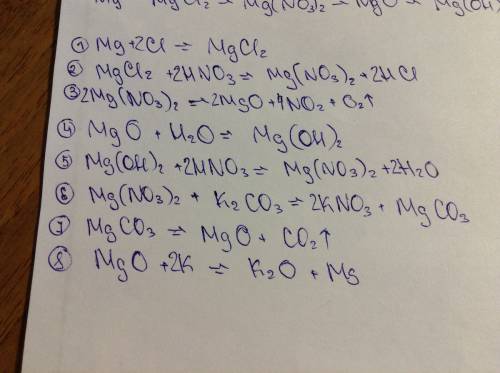 Mg MgCl₂ — Mg(NO₃)₂ — MgO — Mg(OH)
① Mg+2Cl = MgCl₂
② MgCl₂ +2HNO₃ = Mg(NO₃)₂+2HCl
③ 2Mg(NO₃)₂ = 2MgO+4NO₂+O₂↑
④ MgO + H₂O = Mg(OH)₂
⑤ Mg(OH)₂ +2HNO₃ = Mg(NO₃)₂+2H₂O
⑥ Mg(NO₃)₂ + K₂CO₃ = 2KNO₃ + MgCO₃
⑦ MgCO₃ = MgO + CO₂↑
⑧ MgO +2K = K₂O + Mg